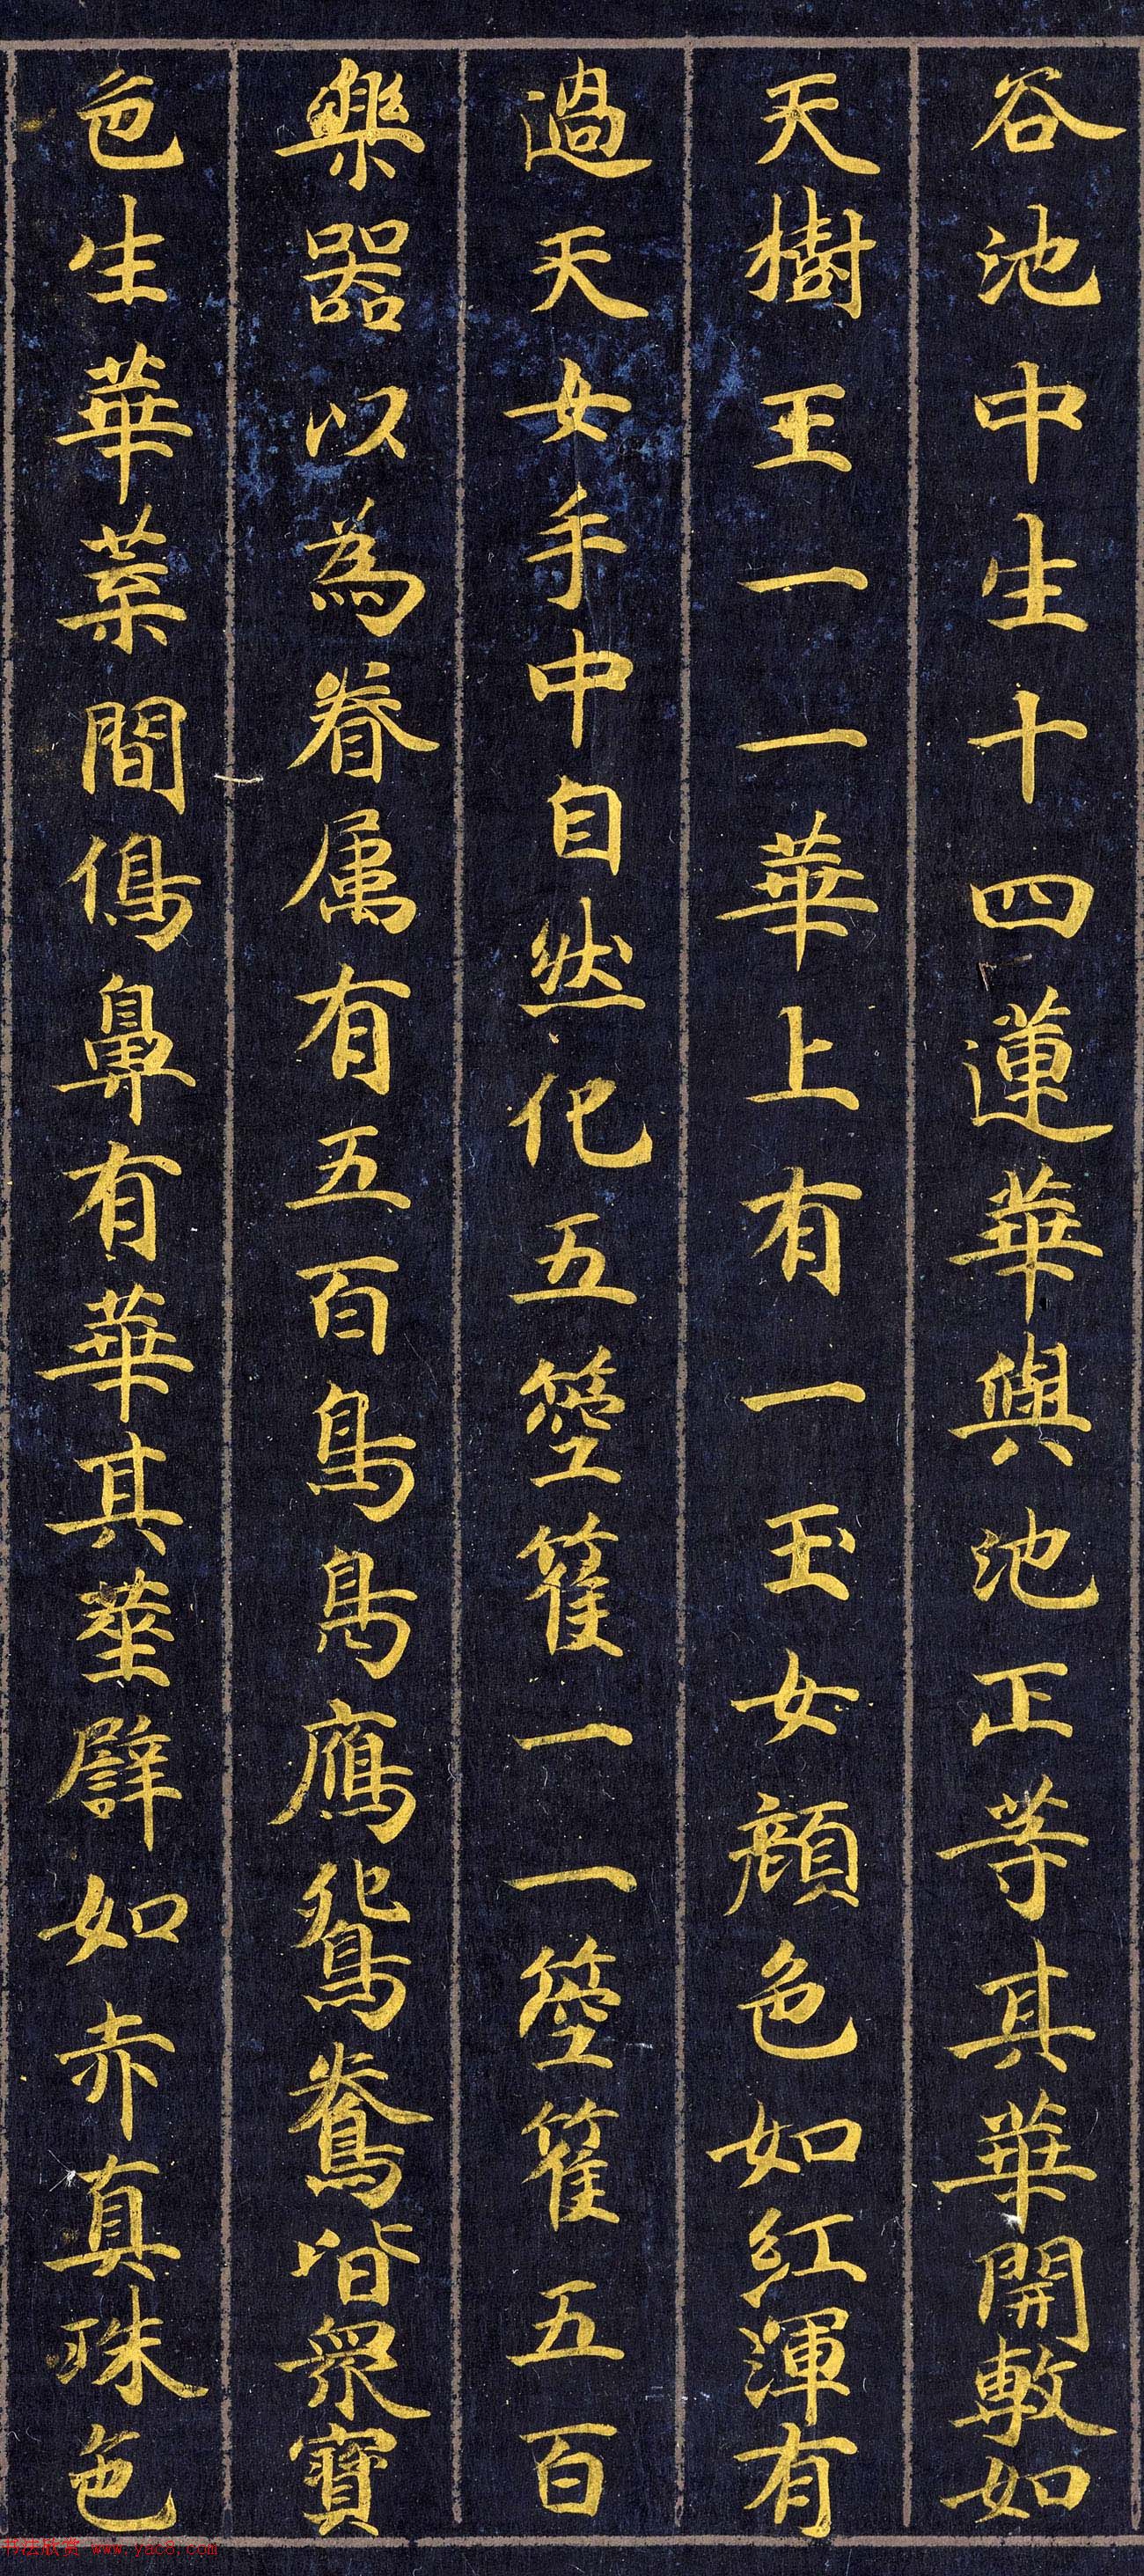 谷池中生十四蓮華與池正等其華開敷如
天樹王一一華上有一玉女顏色如紅渾有
過天女手中自然化五箜篌一一箜篌五百
樂器以為眷属有五百鳥鳧鷹鴛鴦皆眾寶
色生華葉間象鼻有華其莖譬如赤真珠色
书法欣赏 www.yac8.com